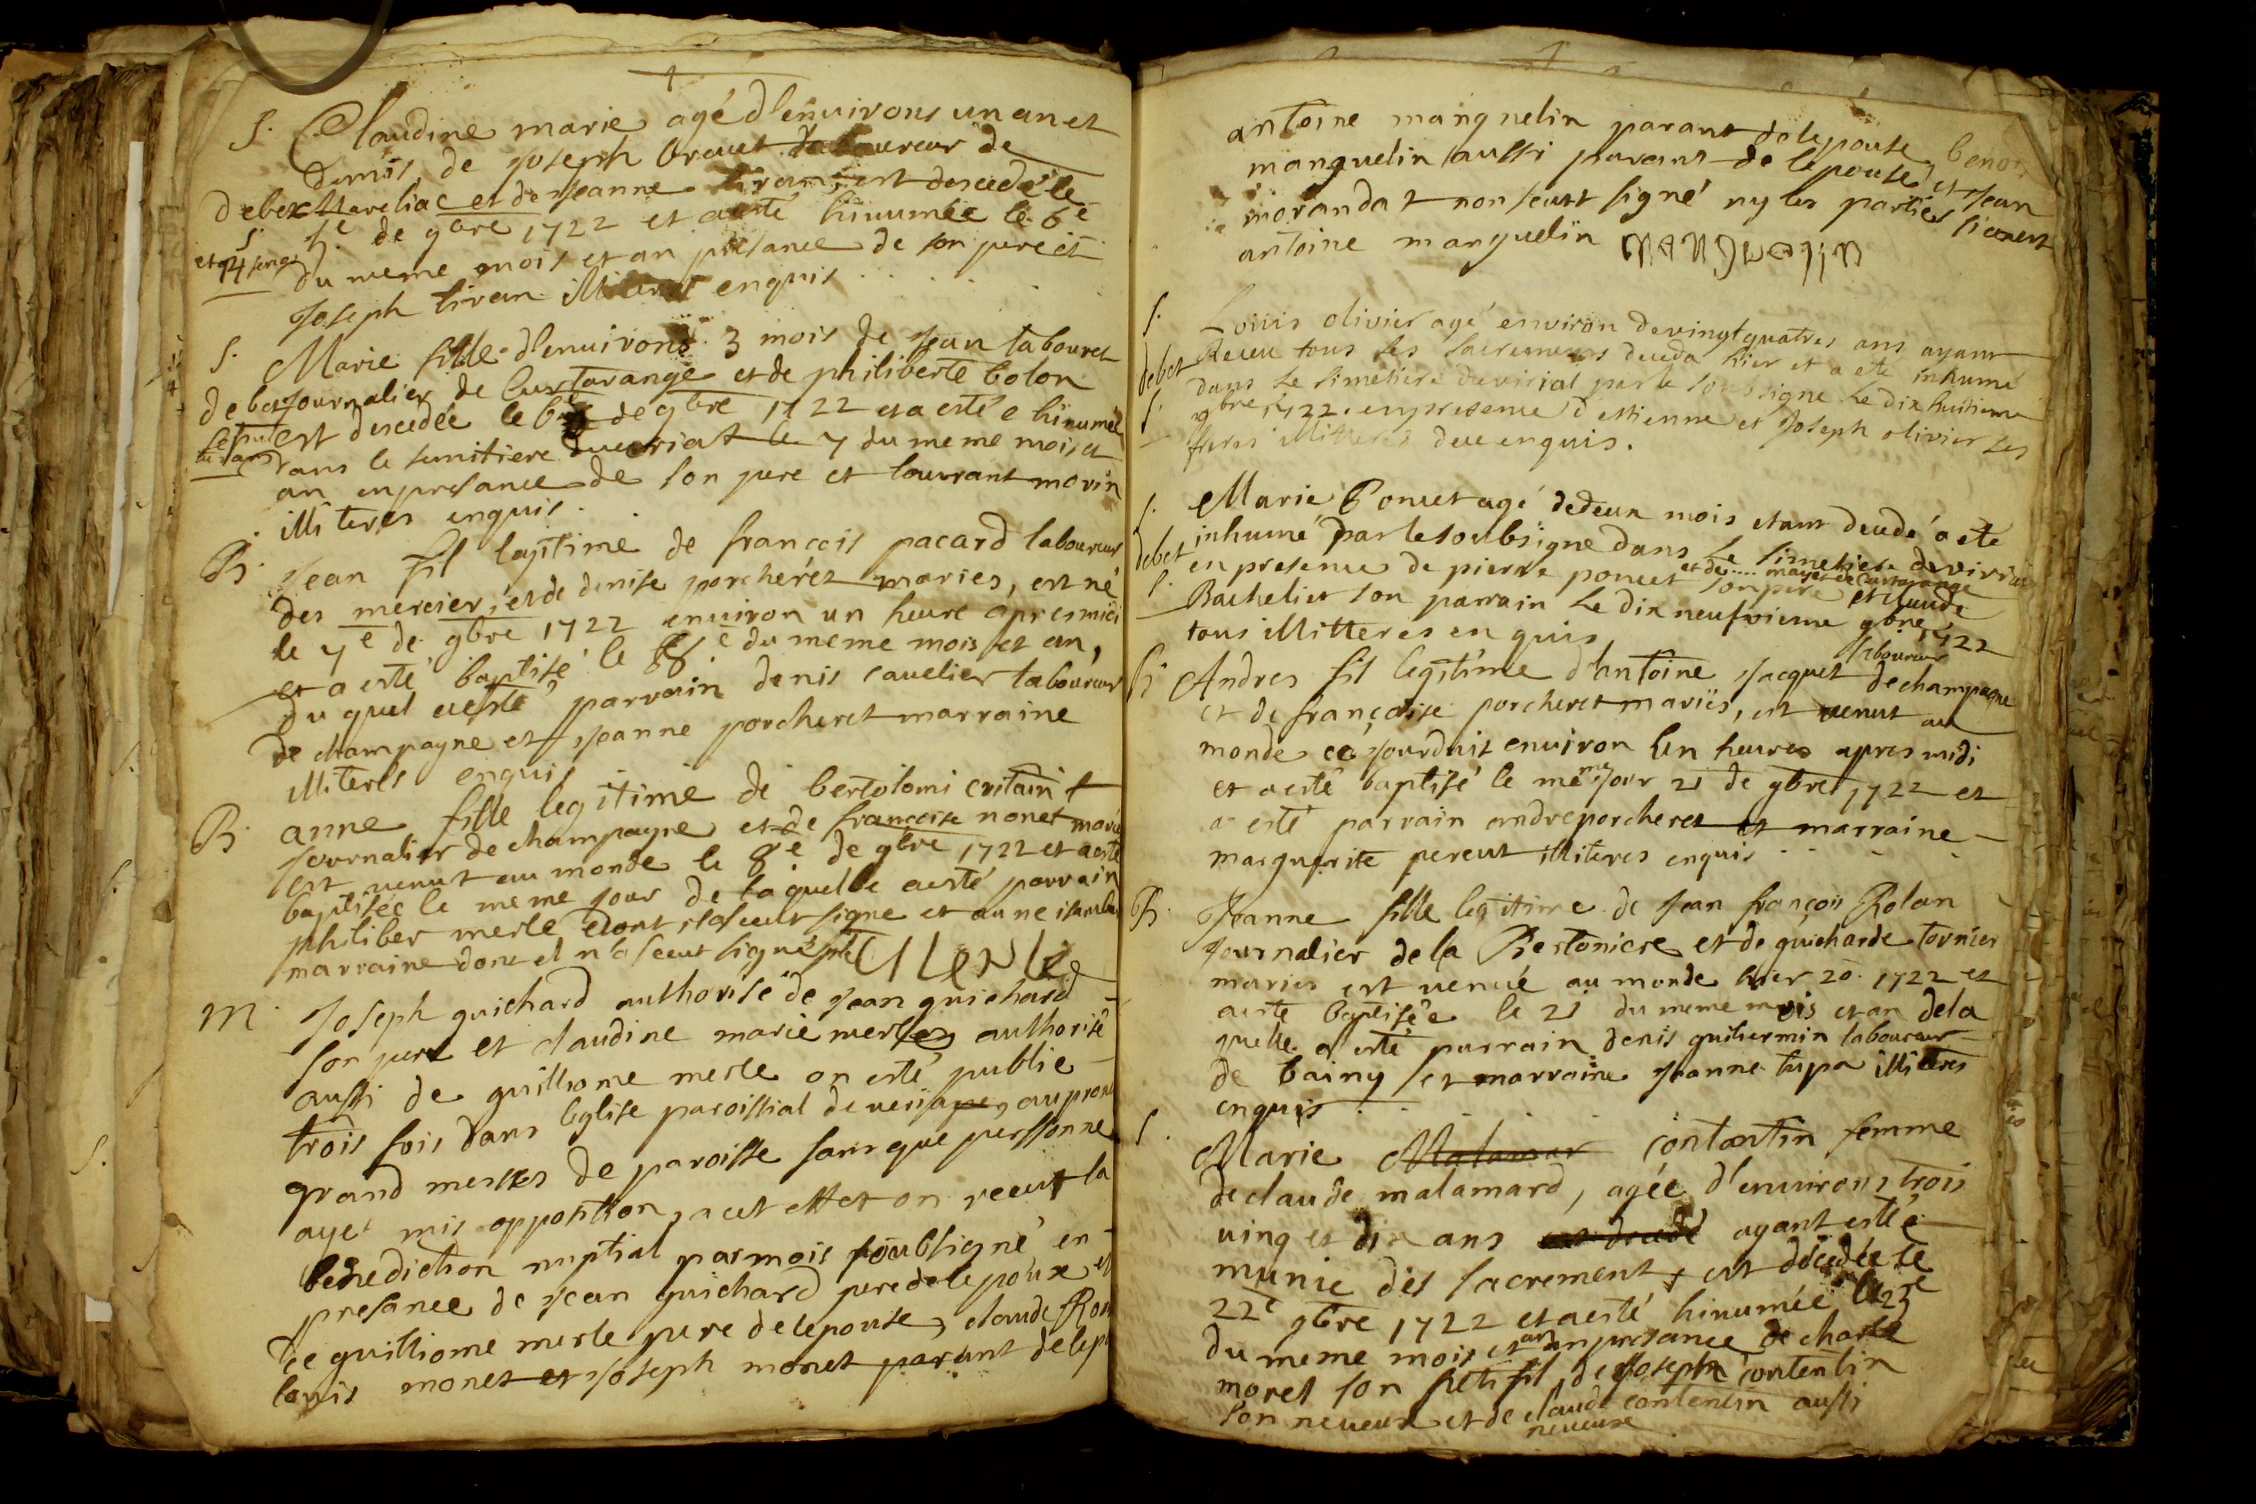 S. Claudine marie agé d'enuirons un an et
demis, de joseph brouet laboureur de
debet et de jeanne tiran est descedé le
5e de gbre 1722 et a esté hinumée le 6e
du meme mois et an presance de son pere et
joseph tiran enquis
S. Marie fille d'enuirons 3 mois de jean labouret
debet journalier de Curtarange et de philiberte bolon
est descedée le 6 de gbre 1722 et a esté hinumée
dans le semitiere de uiriat le 7 du meme mois et
an en presance de son pere et lourant morin
illiteres enquis.
B. jean fil lajitime de françois pacard laboureur
des mercier, et de denise porcheret maries, est né
le 7e de gbre 1722 enuiron un heure apres midi
et a esté baptisé le 8e du meme mois et an,
du quel a esté parrain denis cauelier laboureur
de champagne et jeanne porcheret marraine
illiteres enquis
B. anne fille legitime de bertolomi
journalier de champagne et de françoise nonet marié
est uenut au monde le 8e de gbre 1722 et a esté
baptisée le meme jour de laquelle a esté parrain
philiber merle dont il a seeut signe et anne
marraine dont el n'a seeut signé
M. joseph guichard authorisé de jean guichard
son pere et claudine marie merle authorisé
aussi de guilliome merle on esté publie
trois fois dans leglise paroissial de au prone
grand messes de paroisse sans que perssonne
aye mis opposition, a cet effet on receut la
benediction nuptial par mois soubsigné en
presance de jean guichard pere de lepoux et
de guilliome merle pere de lepouse, claude
louis monet et joseph monet parant de
antoine manguelin parant de lepouse benoi
manguelin aussi parant de lepouse, et jean
morandat non seeut signé ny les parties
antoine manguelin
S. Louis olivier agé environ de vingt quatres ans ayant
debet Receu tous les sacremens deceda hier et a ete inhumé
dans le simetiere de viriat par le soubsigne Le dix huitieme
S. gbre 1722. en presence d'estienne et Joseph olivier ses
freres illitteres deue enquis.
S. Marie Poncet agé de deux mois etant decedé a ete
debet inhumé par le soubsigne dans le simetiere de viriat
en presence de pierre poncet son pere et claude
et de .... mayet de Curtarange
S. Bachelier son parrain Le dix neufvieme gbre 1722
tous illitteres enquis
laboureur
B Andres fil legitime d'antoine jacquet de champagne
et de françoise porcheret mariés, est uenut au
monde ce jourduit enuiron un heures apres midi
et a esté baptisé le meme jour 21 de gbre 1722 et
a esté parrain andre porcheret et marraine
marguerite pereut illiteres enquis
B. Jeanne fille legitime de jean françois Rolan
journalier de la Bertoniere et de guicharde tornier
maries est uenué au monde hier 20 1722 et
a esté baptisée le 21 du meme mois et an de la
quelle a esté parrain denis guiliermin laboureur
de bainy et marraine jeanne tupa illiteres
enquis
S. Marie Malamar contantin femme
de claude malamard, agée d'enuirons trois
uing et dix ans est decedé ayant estée
munie des sacrement, est décedée le
22e gbre 1722 et a esté hinumée le 23e
du meme mois et an en presance de charle
morel son petit fil de joseph contentin
son neueux et de claude contentin aussi
neueuxe